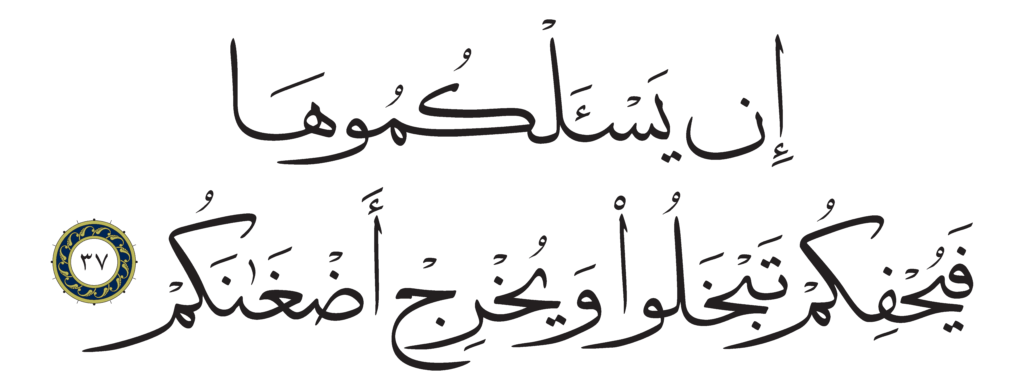 إِن يَسْـَٔلْكُمُوهَا
فَيُحْفِكُمْ تَبْخَلُوا۟ وَيُخْرِجْ أَضْغَـٰنَكُمْ ٣٧